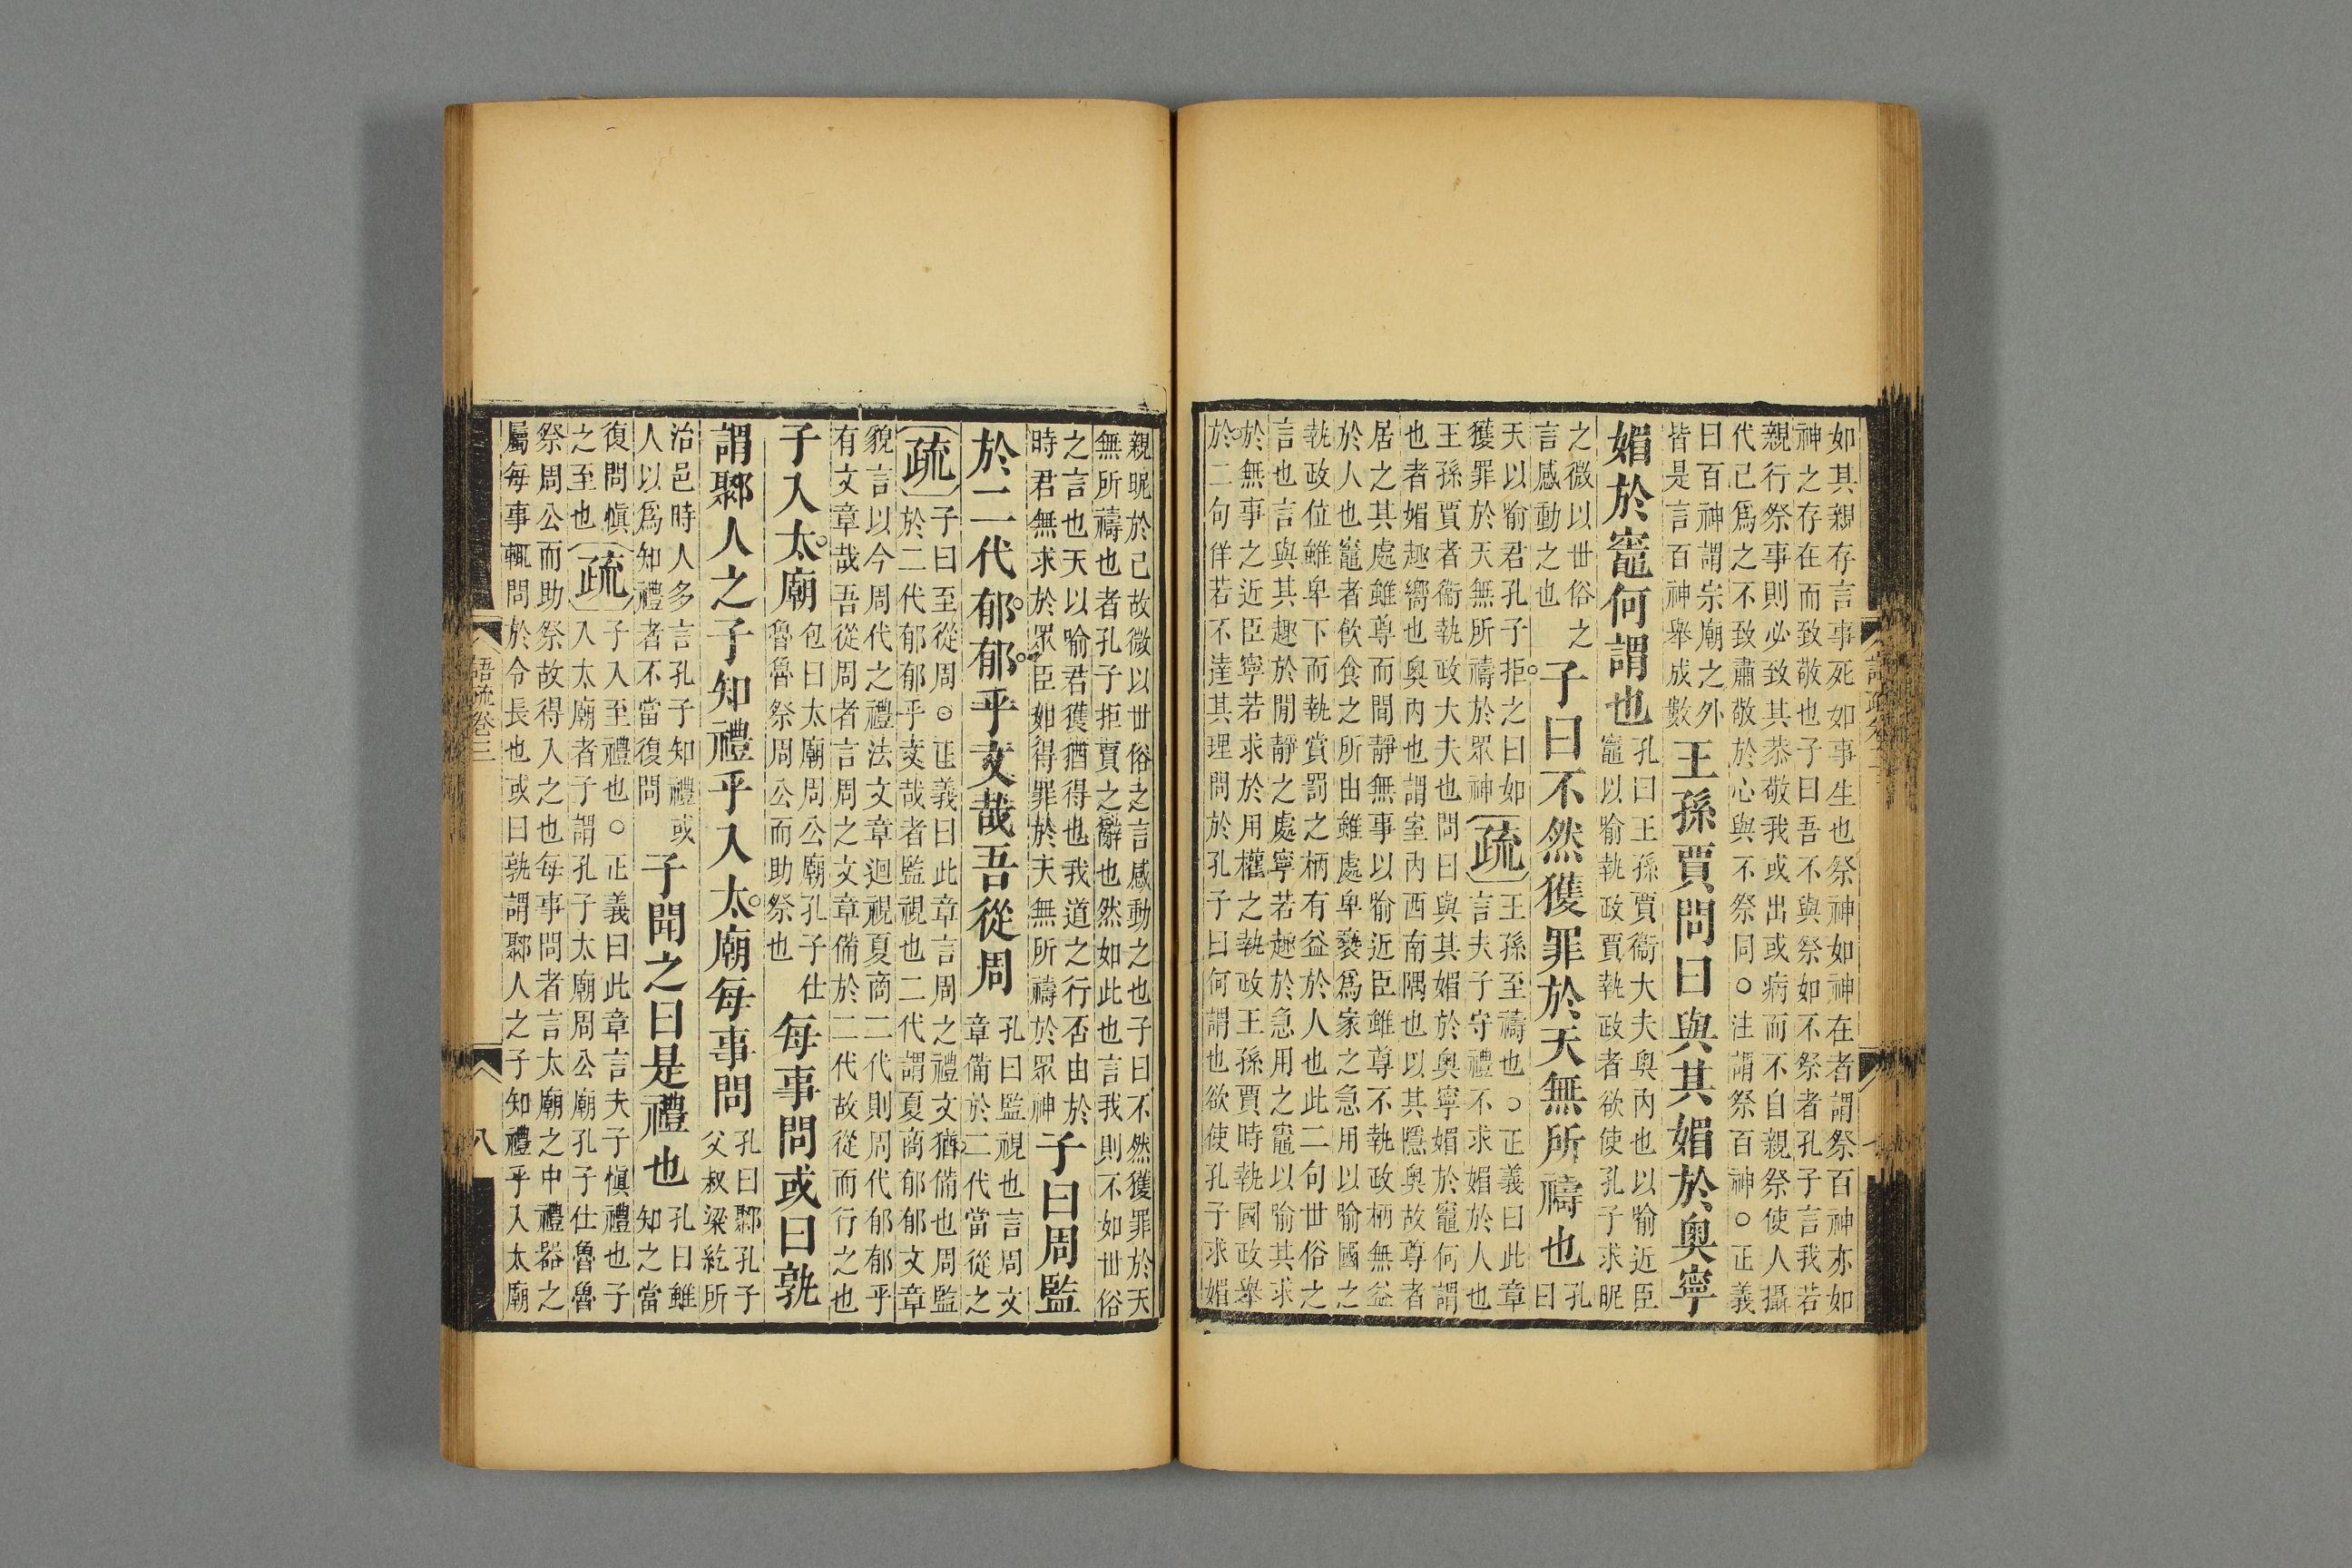 如其親存言事死如事生也祭神如神在者謂祭百神亦如
神之存在而致敬也子曰吾不與祭如不祭者孔子言我若
親行祭事則必致其恭敬我或出或病而不自親祭使人攝
代己爲之不致肅敬於心與不祭同○注謂祭百神○正義
曰百神謂宗廟之外
皆是言百神舉成數
王孫賈問曰與其媚於奧寧
媚於竈何謂也
孔曰王孫賈衞大夫奧內也以喻近臣
竈以喻執政賈執政者欲使孔子求昵
之微以世俗之
言感動之也
子曰不然獲罪於天無所禱也
孔
曰
天以喻君孔子拒之曰如
獲罪於天無所禱於眾神
疏
王孫至禱也○正義曰此章
言夫子守禮不求媚於人也
王孫賈者衞執政大夫也問曰與其媚於奧寧媚於竈何謂
也者媚趣嚮也奧內也謂室內西南隅也以其隱奧故尊者
居之其處雖尊而間靜無事以喻近臣雖尊不執政柄無益
於人也竈者飲食之所由雖處卑褻爲家之急用以喻國之
執政位雖卑下而執賞罰之柄有益於人也此二句世俗之
言也言與其趣於閒靜之處寧若趣於急用之竈以喻其求
於無事之近臣寧若求於用權之執政王孫賈時執國政舉
於二句佯若不達其理問於孔子曰何謂也欲使孔子求媚
親昵於己故微以世俗之言感動之也子曰不然獲罪於天
無所禱也者孔子拒賈之辭也然如此也言我則不如世俗
之言也天以喻君獲猶得也我道之行否由於
時君無求於眾臣如得罪於天無所禱於眾神
子曰周監
於二代郁郁乎文哉吾從周
孔曰監視也言周文
章備於二代當從之
疏
子曰至從周○正義曰此章言周之禮文猶備也周監
於二代郁郁乎文哉者監視也二代謂夏商郁郁文章
貌言以今周代之禮法文章迴視夏商二代則周代郁郁乎
有文章哉吾從周者言周之文章備於二代故從而行之也
子入太廟
包曰太廟周公廟孔子仕
魯魯祭周公而助祭也
每事問或曰孰
謂鄹人之子知禮乎入太廟每事問
孔曰鄹孔子
父叔梁紇所
治邑時人多言孔子知禮或
人以爲知禮者不當復問
子聞之曰是禮也
孔曰雖
知之當
復問愼
之至也
疏
子入至禮也○正義曰此章言夫子愼禮也子
入太廟者子謂孔子太廟周公廟孔子仕魯魯
祭周公而助祭故得入之也每事問者言太廟之中禮器之
屬每事輒問於令長也或曰孰謂鄹人之子知禮乎入太廟
語疏卷三
八